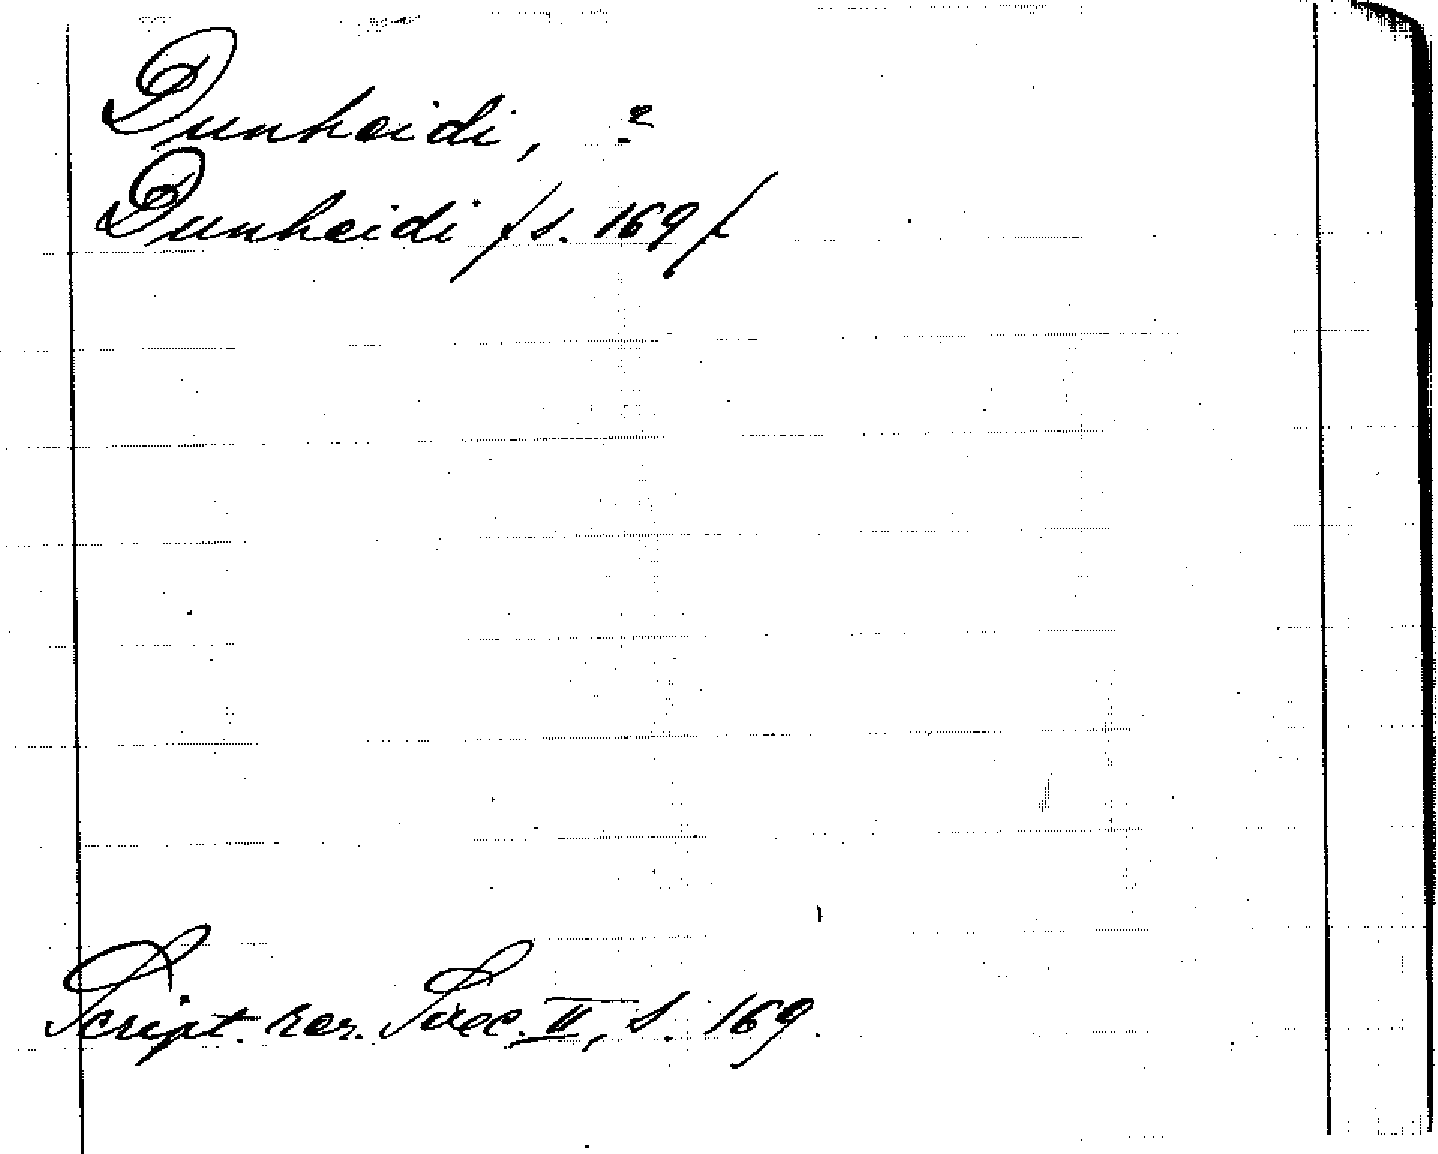 Dunheidi, ?
Dunheidi /s. 169/
Script. rer. Svec. II, s. 169.